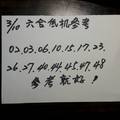 3/10 六合危机參考
02.03.06.10.15.17.23.
26.27.40.44.45.47.48
參考就好!